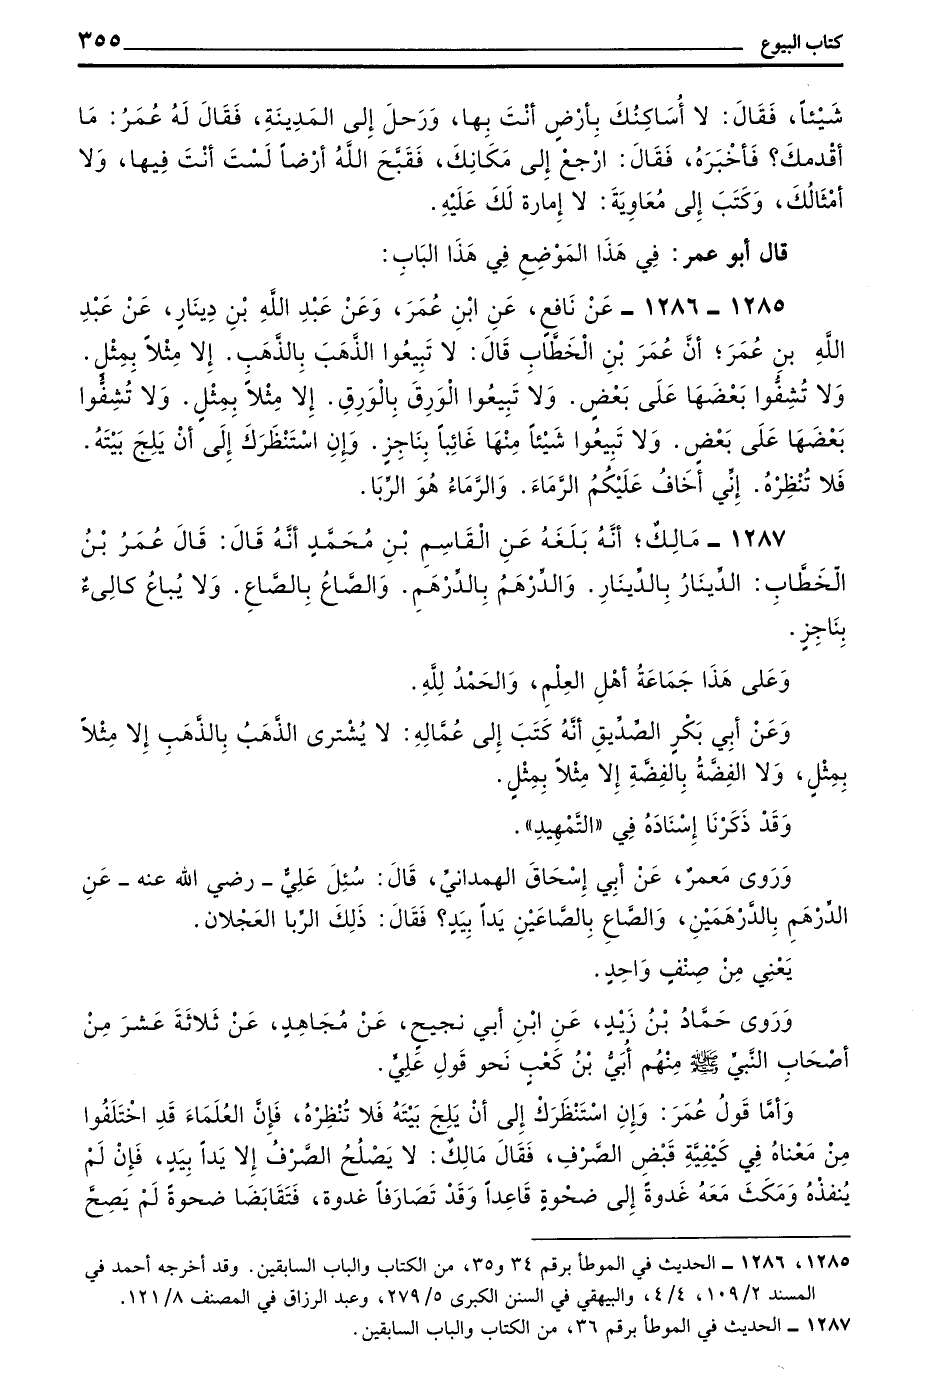 كتاب البيوع ٣٥٥
شَيْئاً، فَقَالَ: لا أُسَاكِنُكَ بِأرْضٍ أنْتَ بِها، وَرَحلَ إلى المَدِينَةِ، فَقَالَ لَهُ عُمَرُ: مَا
أقْدمكَ؟ فَأخْبَرَهُ، فَقَالَ: ارْجعْ إلى مَكَانِكَ، فَقَبَّحَ اللَّهُ أرْضاً لَسْتَ أنْتَ فِيها، وَلا
أمْثَالُكَ، وَكَتَبَ إلى مُعَاوِيَةَ: لا إمارة لَكَ عَلَيْهِ.
قال أبو عمر: فِي هَذَا المَوْضِعِ فِي هَذَا البَابِ:
١٢٨٥ ـ ١٢٨٦ ـ عَنْ نَافِعٍ، عَنِ ابْنِ عُمَرَ، وَعَنْ عَبْدِ اللَّهِ بْنِ دِينَارٍ، عَنْ عَبْدِ
اللَّهِ بنِ عُمَرَ؛ أنَّ عُمَرَ بْنِ الْخَطَّابِ قَالَ: لا تَبِيعُوا الذَّهَبَ بِالذَّهَبِ. إلا مِثْلاً بِمِثْلٍ.
وَلا تُشِفُّوا بَعْضَهَا عَلَى بَعْضٍ. وَلا تَبِيعُوا الْوَرِقَ بِالْوَرِقِ. إلا مِثْلاً بِمِثْلٍ. وَلا تُشِفُّوا
بَعْضَهَا عَلَى بَعْضٍ. وَلا تَبِيعُوا شَيْئاً مِنْهَا غَائِباً بِنَاجِزٍ. وَإنِ اسْتَنْظَرَكَ إلَى أنْ يَلِجَ بَيْتَهُ.
فَلا تُنْظِرْهُ. إنِّي أخَافُ عَلَيْكُمُ الرَّمَاءَ. وَالرَّمَاءُ هُوَ الرِّبَا.
١٢٨٧ ـ مَالِكٌ؛ أنَّهُ بَلَغَهُ عَنِ الْقَاسِمِ بْنِ مُحَمَّدٍ أنَّهُ قَالَ: قَالَ عُمَرُ بْنُ
الْخَطَّابِ: الدِّينَارُ بِالدِّينَارِ. وَالدِّرْهَمُ بِالدِّرْهَمِ. وَالصَّاعُ بِالصَّاعِ. وَلا يُبَاعُ كالِىءٌ
بِنَاجِزٍ.
وَعَلى هَذَا جَمَاعَةُ أهْلِ العِلْمِ، وَالحَمْدُ لِلَّهِ.
وَعَنْ أبِي بَكْرٍ الصِّدِّيقِ أنَّهُ كَتَبَ إلى عُمَّالِهِ: لا يُشْترى الذَّهَبُ بِالذَّهَبِ إلا مِثْلاً
بِمِثْلٍ، وَلا الفِضَّةُ بِالفِضَّةِ إلا مِثْلاً بِمِثْلٍ.
وَقَدْ ذَكَرْنَا إسْنَادَهُ فِي «التَّمْهِيدِ».
وَرَوى مَعمرٌ، عَنْ أبِي إسْحَاقَ الهمدانيِّ، قَالَ: سُئِلَ عَلِيٌّ ـ رضي الله عنه ـ عَنِ
الدِّرْهَمِ بِالدَّرْهَمَيْنِ، وَالصَّاعِ بِالصَّاعَيْنِ يَداً بِيَدٍ؟ فَقَالَ: ذَلِكَ الرّبا العَجْلان.
يَعْنِي مِنْ صِنْفٍ وَاحِدٍ.
وَرَوى حَمَّادُ بْنُ زَيْدٍ، عَنِ ابْنِ أبي نجيحٍ، عَنْ مُجَاهِدٍ، عَنْ ثَلاثَةَ عَشَرَ مِنْ
أصْحَابِ النَّبِيِّ ﷺ مِنْهُم أُبَيُّ بْنُ كَعْبٍ نَحو قَولِ عَلِيٍّ.
وَأمَّا قَولُ عُمَرَ: وَإنِ اسْتَنْظَرَكْ إلى أنْ يَلِجَ بَيْتَهُ فَلا تُنْظِرْهُ، فَإنَّ العُلَمَاءَ قَدِ اخْتَلَفُوا
مِنْ مَعْناهُ فِي كَيْفِيَّةِ قَبْضِ الصَّرْفِ، فَقَالَ مَالِكٌ: لا يَصْلُحُ الصَّرْفُ إلا يَداً بِيَدٍ، فَإنْ لَمْ
يُنفذْهُ وَمَكثَ مَعَهُ غَدوةً إلى ضحْوةٍ قَاعِداً وَقَدْ تَصَارَفاً غدوة، فَتَقَابَضَا ضحوةً لَمْ يَصِحَّ
١٢٨٥، ١٢٨٦ ـ الحديث في الموطأ برقم ٣٤ و٣٥، من الكتاب والباب السابقين. وقد أخرجه أحمد في
المسند ١٠٩/٢، ٤/٤، والبيهقي في السنن الكبرى ٢٧٩/٥، وعبد الرزاق في المصنف ١٢١/٨.
١٢٨٧ ـ الحديث في الموطأ برقم ٣٦، من الكتاب والباب السابقين.